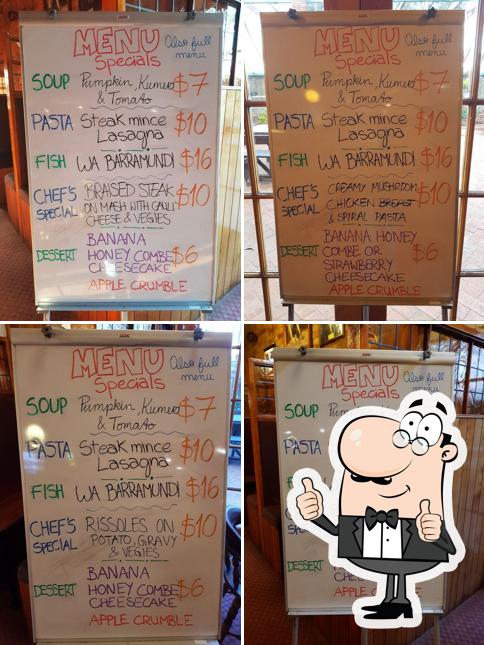 MENU
Specials
Also full
menu
SOUP Pumpkin, Kumera $7
& Tomato
PASTA Steak mince $10
Lasagna
FISH WA BARRAMUNDI $16
CHEF'S BRAISED STEAK $10
SPECIAL ON MASH WITH CAULI
CHEESE & VEGIES
BANANA
DESSERT HONEY COMBE $6
CHEESECAKE
APPLE CRUMBLE
MENU
Specials
Also full
menu
SOUP Pumpkin, Kumera $7
& Tomato
PASTA Steak mince $10
Lasagna
FISH WA BARRAMUNDI $16
CHEF'S CREAMY MUSHROOM $10
SPECIAL CHICKEN BREAST
& SPIRAL PASTA
BANANA HONEY
DESSERT COMBE OR $6
STRAWBERRY
CHEESECAKE
APPLE CRUMBLE
MENU
Specials
Also full
menu
SOUP Pumpkin, Kumera $7
& Tomato
PASTA Steak mince $10
Lasagna
FISH WA BARRAMUNDI $16
CHEF'S RISSOLES ON $10
SPECIAL POTATO, GRAVY
& VEGIES
BANANA
DESSERT HONEY COMBE $6
CHEESECAKE
APPLE CRUMBLE
MENU
Specials
Also full
menu
SOUP
PASTA
DESSERT